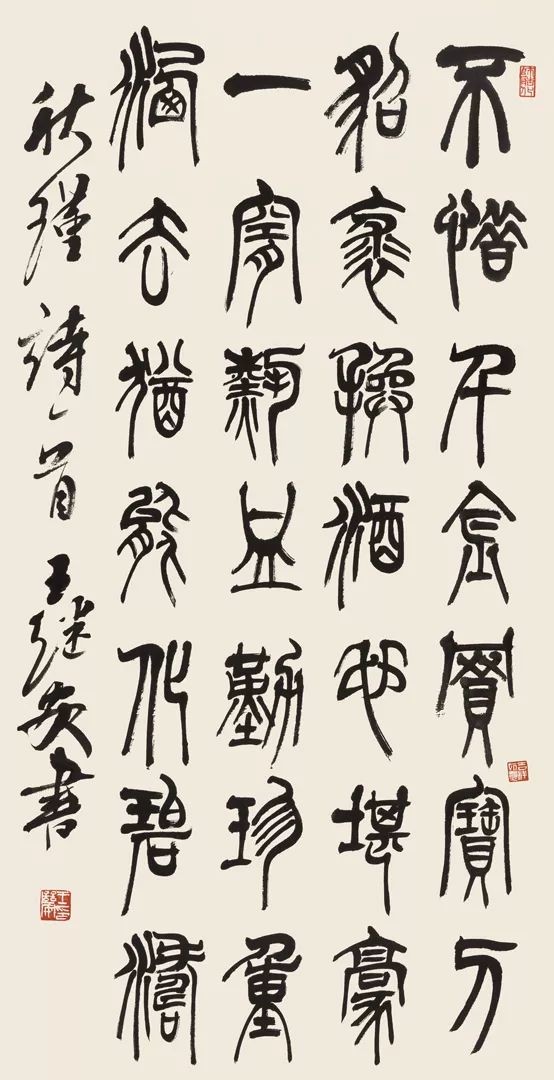 不惜千金買寶刀
貂裘換酒也堪豪
一腔熱血勤珍重
洒去猶能化碧濤
秋瑾詩一首 王继安書